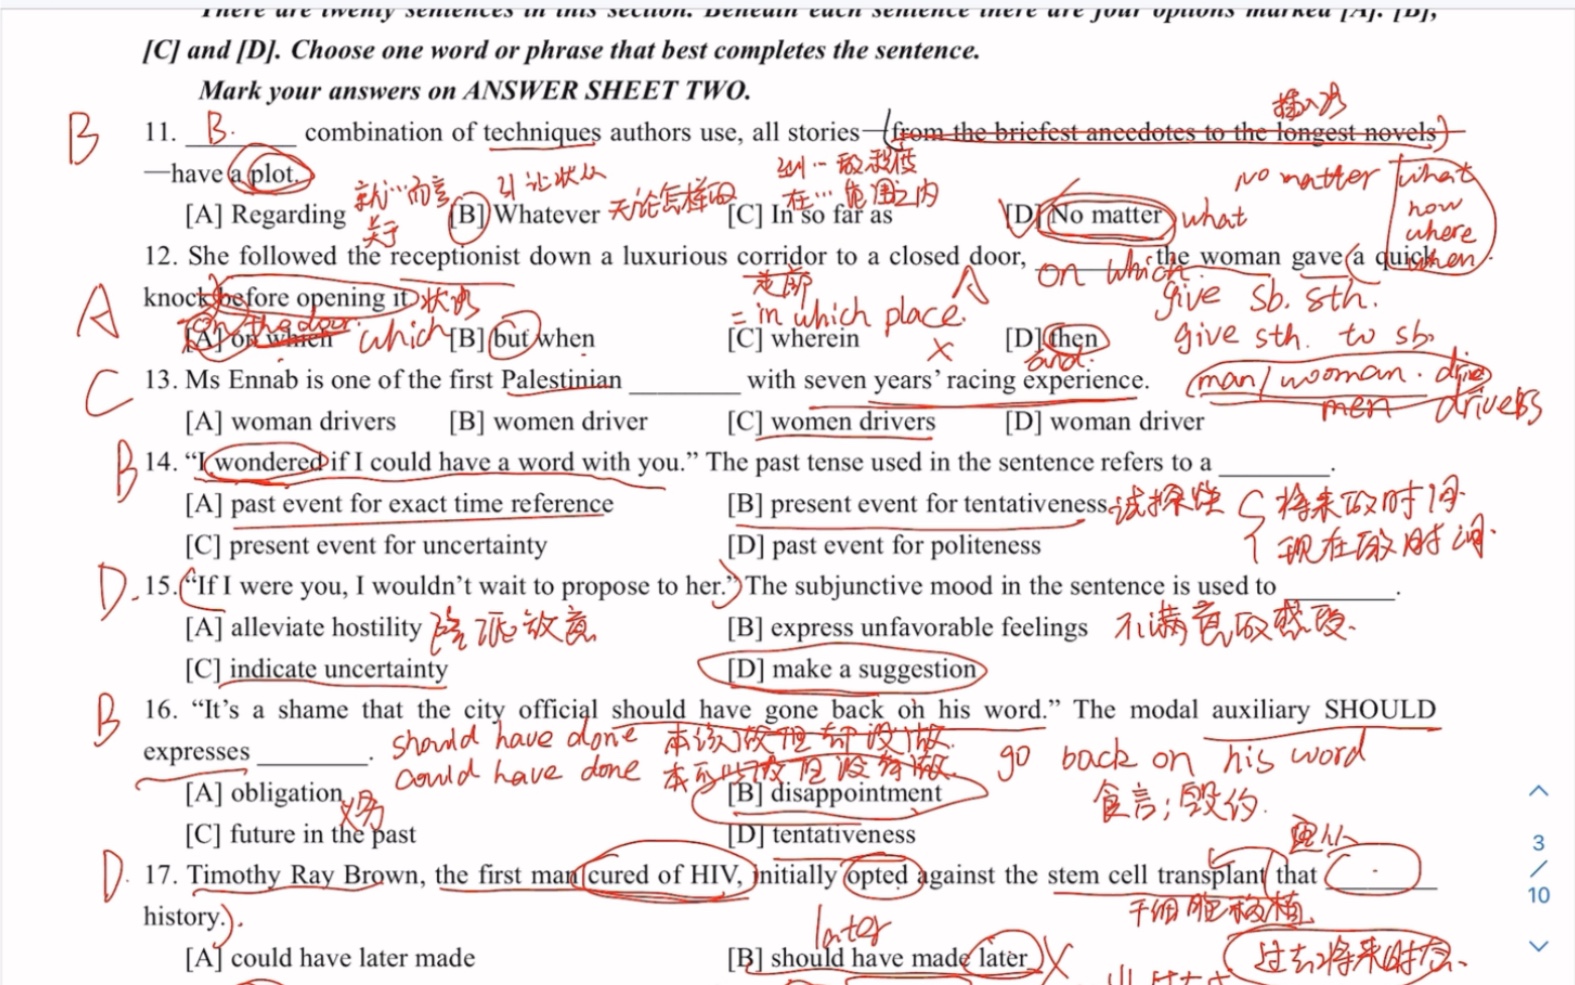 There are twenty sentences in this section. Beneath each sentence there are four options marked [A], [B],
[C] and [D]. Choose one word or phrase that best completes the sentence.
Mark your answers on ANSWER SHEET TWO.
插入语
B 11. B. combination of techniques authors use, all stories—(from the briefest anecdotes to the longest novels)
—have a plot.
就…而言 引让状从 No matter what
[A] Regarding [B] Whatever 无论怎样的 [C] In so far as [D] No matter what how
关于 在…范围之内 where
12. She followed the receptionist down a luxurious corridor to a closed door, on which the woman gave a quick when
A knock before opening it 状语 走廊 A give sb. sth.
on the door. = in which place.
[A] on which which [B] but when [C] wherein X [D] then give sth. to sb.
and.
C 13. Ms Ennab is one of the first Palestinian ________ with seven years' racing experience. man/woman. drive
men drivers
[A] woman drivers [B] women driver [C] women drivers [D] woman driver
B 14. “I wondered if I could have a word with you.” The past tense used in the sentence refers to a ________.
[A] past event for exact time reference [B] present event for tentativeness 试探性 将来的时间
[C] present event for uncertainty [D] past event for politeness 现在的时间.
D. 15. “If I were you, I wouldn’t wait to propose to her.” The subjunctive mood in the sentence is used to ________.
[A] alleviate hostility 敌意 [B] express unfavorable feelings 不满意的感受.
[C] indicate uncertainty [D] make a suggestion
B 16. “It’s a shame that the city official should have gone back on his word.” The modal auxiliary SHOULD
expresses ________. should have done 本该做但却没做. go back on his word
could have done 本可以做但没有做.
[A] obligation 义务 [B] disappointment 食言;毁约.
[C] future in the past [D] tentativeness
定从
D. 17. Timothy Ray Brown, the first man cured of HIV, initially opted against the stem cell transplant that ________
干细胞移植
history.
later
[A] could have later made [B] should have made later X 过去将来时态.
3
/
10